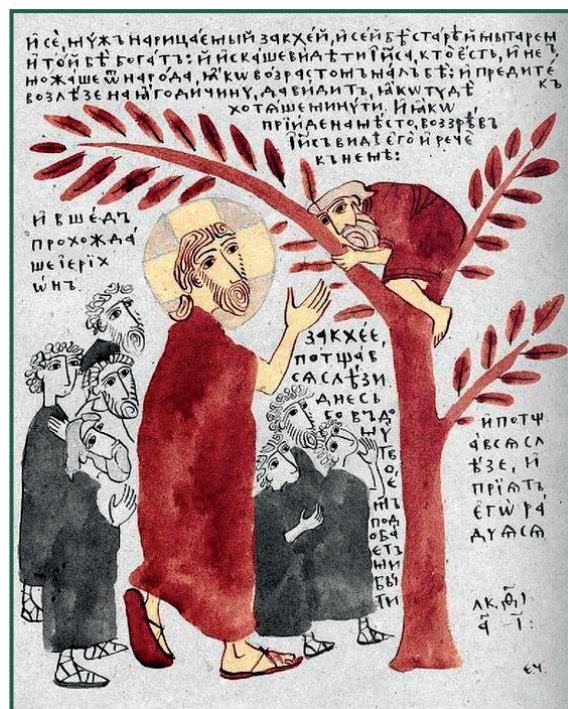 И҆ Сѐ, МУЖЪ НАРИЦАЄМЫЙ ЗАКХЕ́Й, И҆ СЕ́Й БѢ̀ СТАРѢ́Й МЫТАРЕМЪ
И҆ ТО́Й БѢ̀ БОГАТЪ: И҆ И҆СКАШЕ ВИДѢТИ І҆И҃СА, КТО̀ Е҆СТЬ, И҆ НЕ
МОЖАШЕ Ѿ НАРОДА, ꙖКѠ ВОЗРАСТОМЪ МАЛЪ БѢ̀: И҆ ПРЕДИТЕ́КЪ
ВОЗЛѢЗЕ НА ꙖГОДИЧИНУ, ДА ВИДИТЪ, ꙖКѠ ТУДѢ̀
ХОТѦШЕ МИНУТИ. И҆ ꙖКѠ
ПРІ́ИДЕ НА МѢСТО, ВОЗЗРѢВЪ
І҆И҃СЪ ВИДѢ Е҆ГО̀ И҆ РЕЧЀ
КЪ НЕМꙊ̀:
И҆ ВШЕ́ДЪ
ПРОХОЖДА́
ШЕ І҆ЕРІ́Х
Ѡ́НЪ.
ЗАКХЕ́Е,
ПОТЩАВ
СѦ СЛѢЗИ.
ДНЕСЬ
БО ВЪ ДО
МУ̀
ТВО
Е́
МЪ
ПОД
ОБА
ЕТЪ
МИ
БЫ
ТИ
И҆ ПОТЩ
АВСѦ СЛ
ѢЗЕ, И҆
ПРІѦТЪ
Е҆ГѠ̀ РА
ДУѦСѦ
ЛК, Ѳ҃І
А҃ – І҃:
Е.Ч.